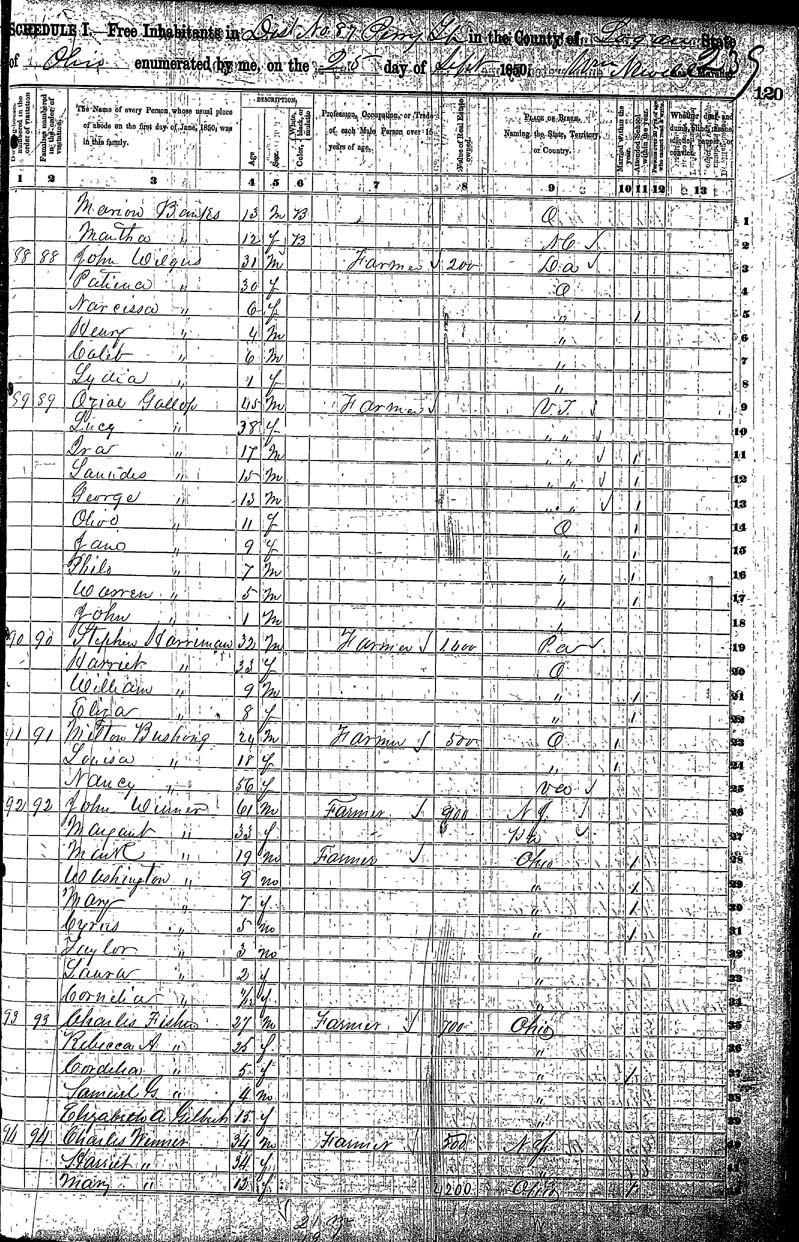 SCHEDULE I.—Free Inhabitants in Dist No. 87 Perry Tp in the County of Logan State
of Ohio enumerated by me, on the 25 day of Sept 1850. Wm Newell
239
120
DESCRIPTION.
Families numbered in the order of visitation.
The Name of every Person, whose usual place of abode on the first day of June, 1850, was in this family.
Age
Sex
Color, White, black, or mulatto
Profession, Occupation, or Trade of each Male Person over 15 years of age.
Value of Real Estate owned.
PLACE OF BIRTH. Naming the State, Territory, or Country.
Married within the year.
Attended School within the year.
Whether deaf and dumb, blind, insane, idiotic, pauper, or convict.
1 2 3 4 5 6 7 8 9 10 11 12 13
Marion Banks 13 M B O 1
Martha " 12 f B N C 2
88 88 John Wilgus 31 M Farmer 200 3
30 f O 4
Narcissa " 6 f " 1 5
Henry " 4 M " 6
Caleb " 6 M " 7
Lydia " 1 f " 8
89 89 Gallop 45 M Farmer V.T. 9
Lucy " 38 f " " 10
Ira " 17 M " " 1 11
" 15 M " " 1 12
George " 13 M " " 1 13
Olive " 11 f O 1 14
Jane " 9 f " 1 15
Philo " 7 M " 1 16
Warren " 5 M " 1 17
John " 1 M " 18
90 90 Stephen Harriman 32 M Farmer 1400 P.a 19
Harriet " 33 f O 20
William " 9 M " 1 21
Eliza " 8 f " 1 22
91 91 Milton Bushong 24 M Farmer 500 O 1 23
Louisa " 18 f " 1 24
Nancy " 56 f 25
92 92 John Winner 61 M Farmer 900 N J 26
Margaret " 33 f Pa 27
Mark " 19 m Farmer Ohio 1 28
Washington " 9 m " 1 29
Mary " 7 f " 1 30
Cyrus " 5 m " 1 31
Taylor " 3 m " 32
Laura " 2 f " 33
Cornelia " f " 34
93 93 Charles Fisher 27 M Farmer 700 Ohio 35
Rebecca A " 25 f " 36
Cordelia " 5 f " 1 37
Samuel G " 4 m " 38
Elizabeth A Gilbert 15 f " 39
94 94 Charles Winner 34 M Farmer 500 N J 40
Harriet " 34 f " 41
Mary " 12 f Ohio 1
4200